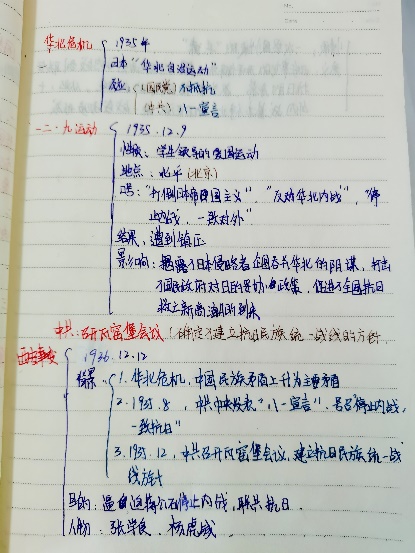 华北危机
1935年
日本"华北自治运动"
反应 国民党：不抵抗
中共：八一宣言
一二·九运动
1935.12.9
性质：学生领导的爱国运动
地点：北平（北京）
口号："打倒日本帝国主义"，"反对华北内战"，"停
止内战，一致对外"
结果：遭到镇压
影响：揭露了日本侵略者企图吞并华北的阴谋，打击
了国民政府对日的妥协政策，促进了全国抗日
救亡新高潮的到来
中共：召开瓦窑堡会议（确定了建立抗日民族统一战线的方针
西安事变
1936.12.12
背景
1. 华北危机，中国民族矛盾上升为主要矛盾
2. 1935.8，中共中央发表"八一宣言"，号召停止内战，
一致抗日"
3. 1935.12，中共召开瓦窑堡会议，建立抗日民族统一战
线方针
目的：逼自迫蒋介石停止内战，联共抗日.
人物：张学良，杨虎城